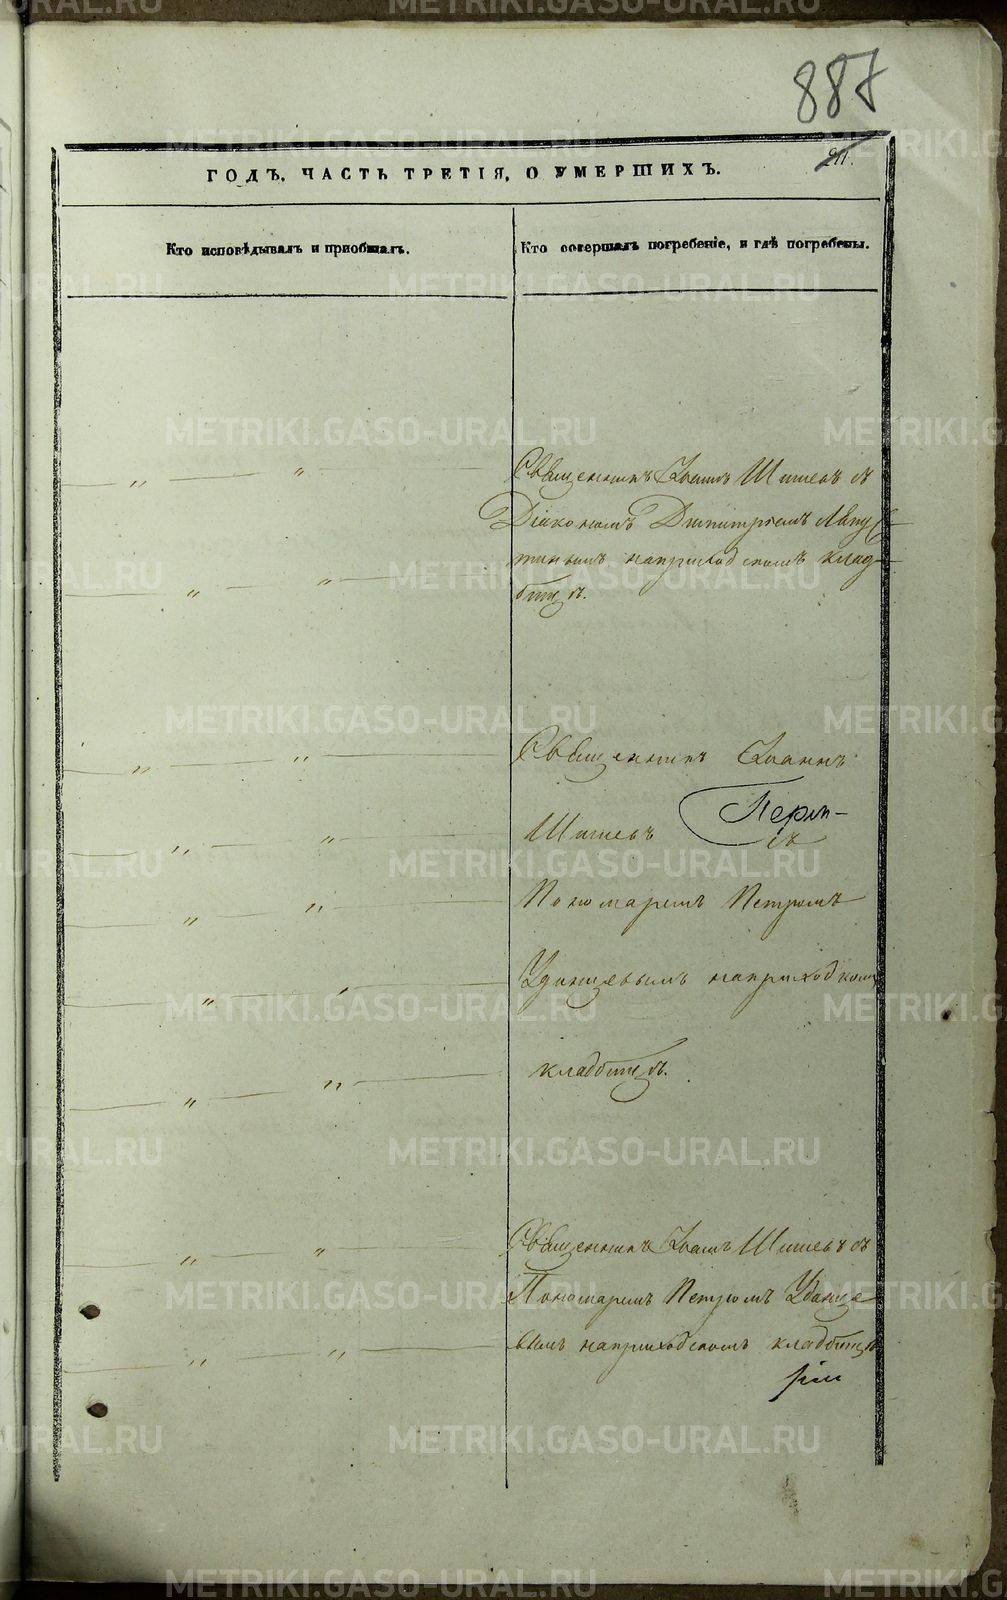 887
ГОДЪ, ЧАСТЬ ТРЕТІЯ, О УМЕРШИХЪ.
Кто исповѣдывалъ и пріобщалъ.
Кто совершалъ погребеніе, и гдѣ погребены.
Священникъ Іоаннъ Шишевъ съ
Діакономъ Димитріемъ Авгус-
тиновымъ наприходскомъ клад-
бищѣ.
Священникъ Іоаннъ
Перм-
Шишевъ съ
Пономаремъ Петромъ
Удинцевымъ наприходском
кладбищѣ.
Священникъ Іоаннъ Шишевъ съ
Пономаремъ Петромъ Удинце-
вымъ наприходскомъ кладбищѣ
METRIKI.GASO-URAL.RU